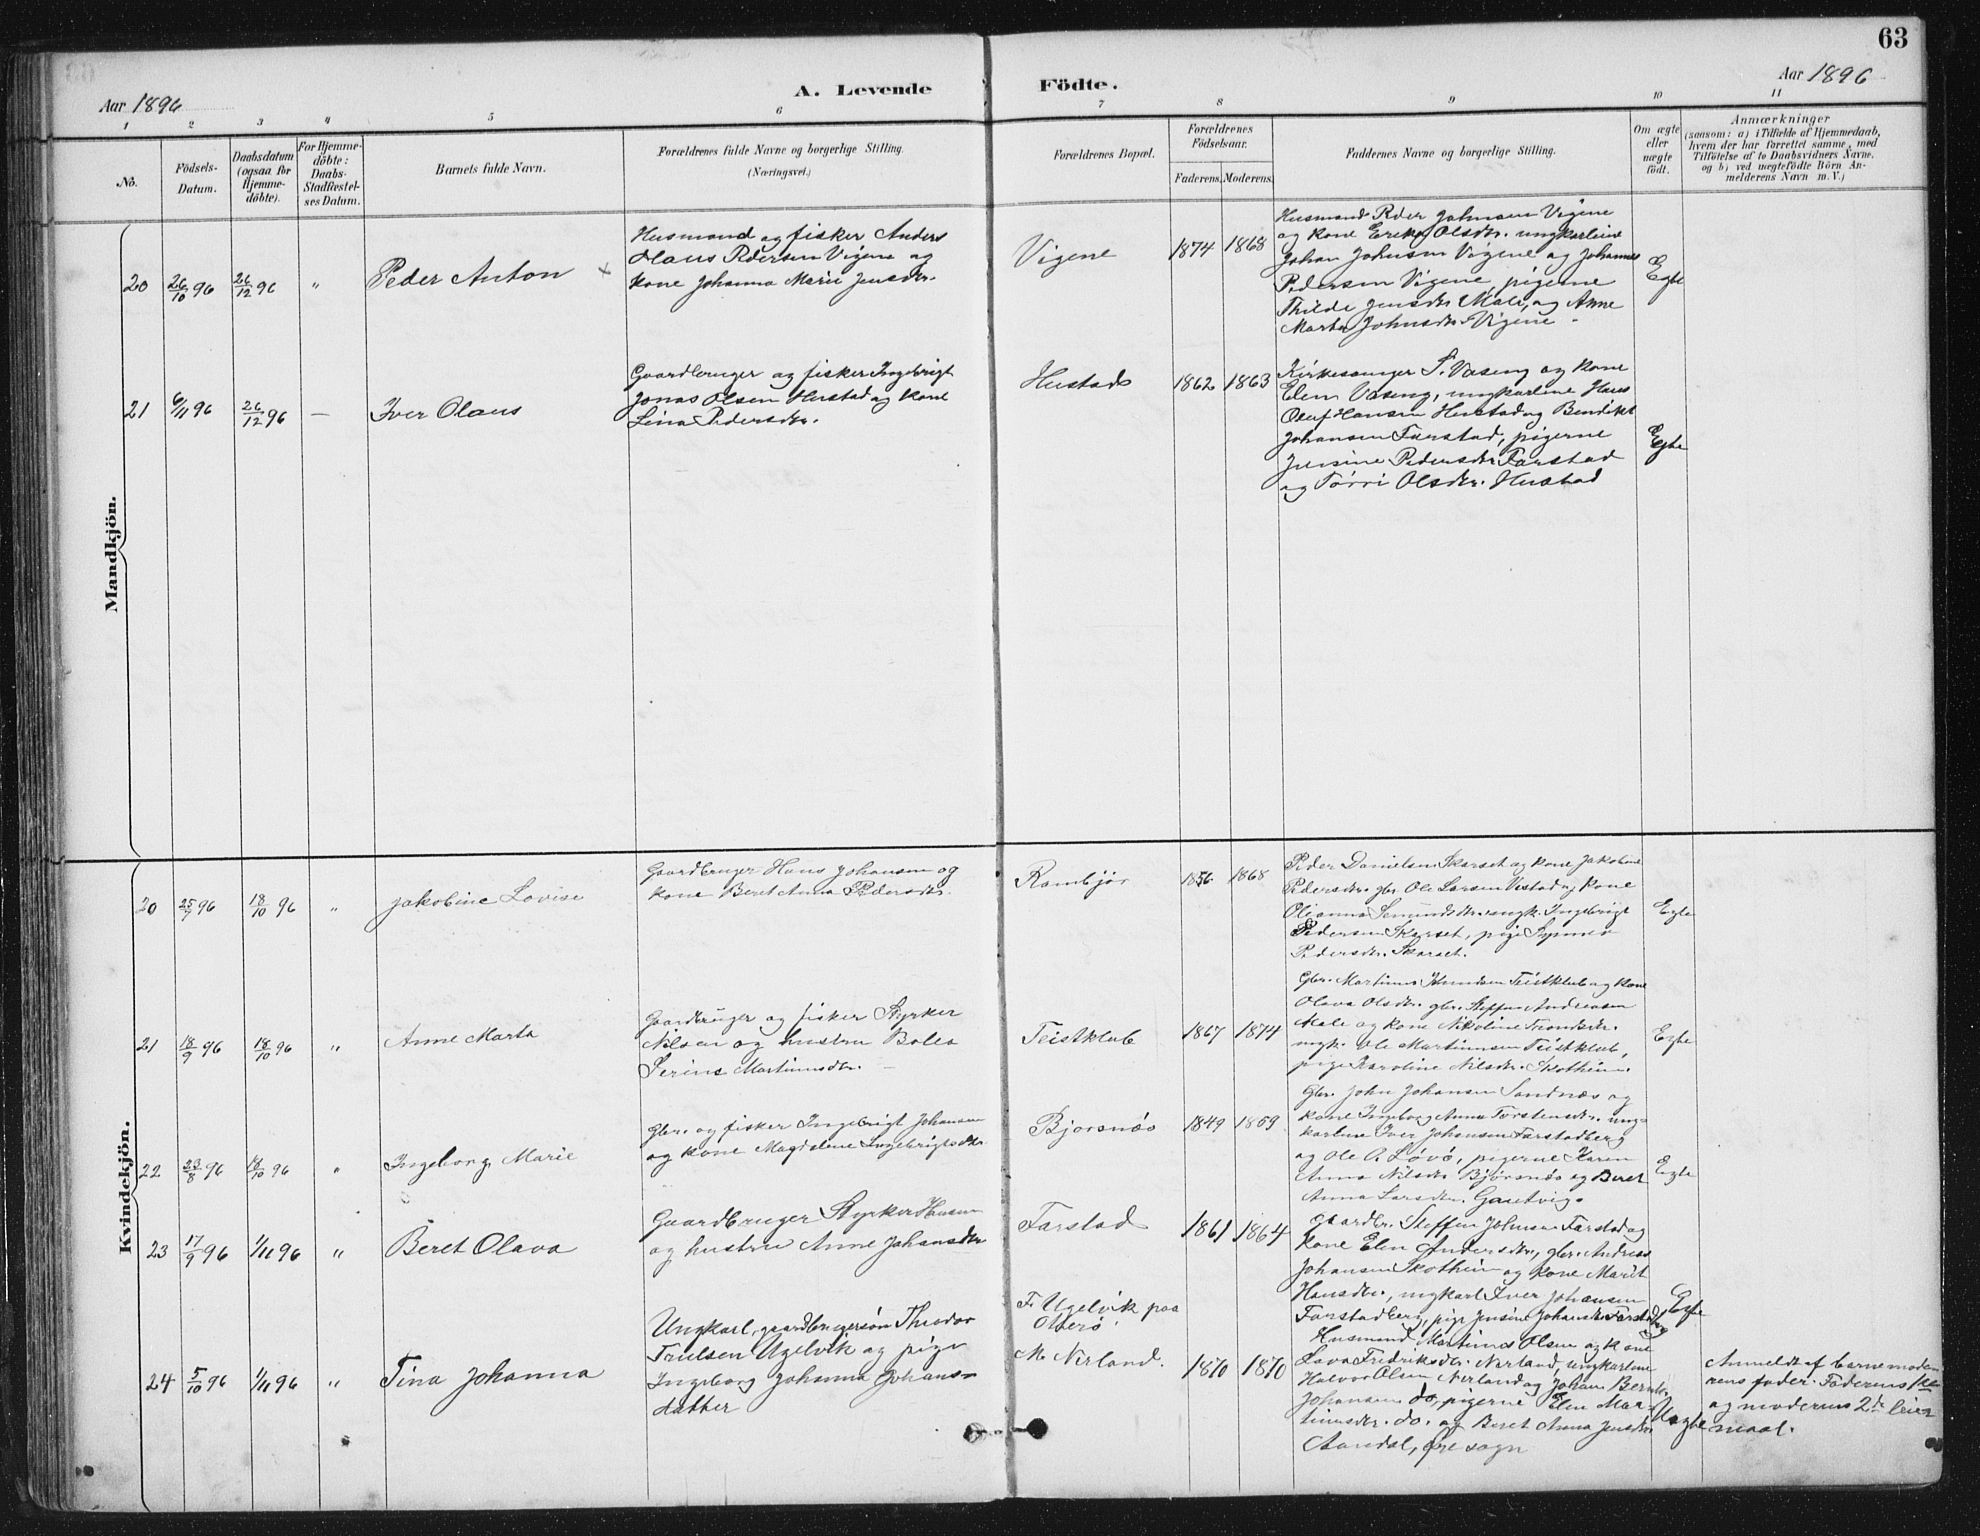 63
Aar 1896
A. Levende Födte.
Aar 1896
1 2 3 4 5 6 7 8 9 10 11
No.
Födsels-Datum.
Daabsdatum (ogsaa for Hjemme-döbte).
For Hjemme-döbte: Daabs-Stadfæstel-ses Datum.
Barnets fulde Navn.
Forældrenes fulde Navne og borgerlige Stilling.
(Næringsvei.)
Forældrenes Bopæl.
Forældrenes Födselsaar.
Faderens. Moderens.
Faddernes Navne og borgerlige Stilling.
Om ægte eller uægte födt.
Anmærkninger
(saasom: a) i Tilfælde af Hjemmedaab,
hvem der har forrettet samme, med
Tilföielse af to Daabsvidners Navne,
og b) ved uægtefödte Börn An-
melderens Navn m. V.)
Mandkjön.
20 26/10 96 26/12 96 " Peder Anton
Husmand og fisker Anders
Hans Pedersen Vigene og
kone Johanna Marie Jensdtr.
Vigene 1874 1868
Husmand Peder Johnsen Vigene
og kone Erika Olsdtr. ungkarlene
Johan Johnsen Vigene og Johannes
Pedersen Vigene, pigerne
Thilde Jensdtr. Male, og Anne
Marta Johnsdtr. Vigene.
Egte
21 6/11 96 26/12 96 — Iver Olaus
Gaardbruger og fisker Ingebrigt
Jonas Olsen Hustad og kone
Lina Pedersdtr.
Hustad 1862 1863
Kirkesanger S. Vaseng og kone
Elen Vaseng, ungkarlene Hans
Oluf Hansen Hustad og Bendikt
Johansen Farstad, pigerne
Jensine Pedersdtr. Farstad
og Törri Olsdtr. Hustad
Egte
Kvindekjön.
20 25/9 96 18/10 96 " Jakobine Lovise
Gaardbruger Hans Johansen og
kone Beret Anna Pedersdtr.
Rambjör 1856 1868
Peder Danielsen Skarset og kone Jakobine
Pedersdtr. gbr. Ole Larsen Vestad og kone
Olianna Semundsdtr. ungk. Ingebrigt
Pedersen Skarset, pige Synnev
Pedersdtr. Skarset.
Egte
21 18/9 96 18/10 96 " Anne Marta
Gaardbruger og fisker Styrker
Nilsen og hustru Bolea
Serine Martinusdtr.
Teistklub 1867 1874
Gbr. Martinus Knudsen Teistklub og kone
Olava Olsdtr. gbr. Steffen Andreasen
Male og kone Nikoline Trondsdtr.
ungk. Ole Martinusen Teistklub,
pige Karoline Nilsdtr. Skotheim.
Egte
22 23/8 96 18/10 96 " Ingeborg Marie
Gbr. og fisker Ingebrigt Johansen
og kone Magdalene Ingebrigtsdtr.
Bjørsnøs 1849 1859
Gbr. John Johansen Sandnæs og
kone Ingeborg Anna Torstensdtr. ung-
karlene Iver Johansen Farstadberg
og Ole O. Løvø, pigerne Karen
Anna Nilsdtr. Bjørsnøs og Beret
Anna Larsdtr. Gaustvig.
Egte
23 17/9 96 1/11 96 " Beret Olava
Gaardbruger Styrker Hansen
og hustru Anne Johansdtr
Farstad 1861 1864
Gaardbr. Steffen Johnsen Farstad og
kone Elen Andersdtr., gbr. Andreas
Johansen Skotheim og kone Marit
Hansdtr., ungkarl Iver Johansen
Farstadberg, pige Jensine Johansdtr. Farstadberg
Egte
24 5/10 96 1/11 96 " Tina Johanna
Ungkarl, gaardbrugersön Theodor
Trulsen Ugelvik og pige
Ingeborg Johanna Johans-
datter
F. Ugelvik paa
Otterö.
M. Nerland. 1870 1870
Husmand Martinus Olsen og kone
Lava Fredriksdtr. Nerland, ungkarlene
Halvor Olsen Nerland og Johan Bernt
Johansen do, pigerne Elen Mar-
tinusdtr. do. og Beret Anna Jensdtr.
Aandal, øre sogn
Uægte
Anmeldt af barnemode-
rens fader. Faderens 1ste
og moderens 2det leier
maal.